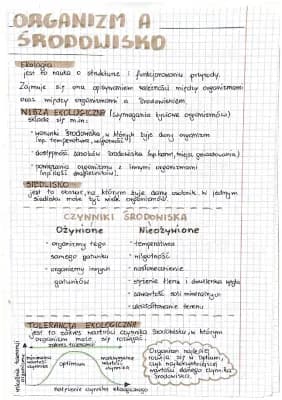 ORGANIZM A
ŚRODOWISKO
Ekologia
jest to nauka o strukturze i funkcjonowaniu przyrody.
Zajmuje się ona opisywaniem zależności między organizmami
oraz między organizmami a środowiskiem.
NISZA EKOLOGICZNA (wymagania życiowe organizmów)
składa się m.in.:
- warunki środowiska w których żyje dany organizm
(np. temperatura, wilgotność)
- dostępność zasobów środowiska (np. karm, miejsc gniazdowania)
- powiązania organizmu z innymi organizmami
(np. ilość drapieżników).
SIEDLISKO
jest to obszar, na którym żyje dany osobnik. W jednym
siedlisku może żyć wiele organizmów.
CZYNNIKI ŚRODOWISKA
Ożywione Nieożywione
- organizmy tego - temperatura
samego gatunku - wilgotność
- organizmy innych - nasłonecznienie
gatunków - stężenie tlenu i dwutlenku węgla
- zawartość soli mineralnych
- ukształtowanie terenu
TOLERANCJA EKOLOGICZNA
jest to zakres wartości czynnika środowiska, w którym
organizm może się rozwijać.
zakres tolerancji
minimalna wartość czynnika
optimum
maksymalna wartość czynnika
Natężenie czynnika ekologicznego
Organizm najlepiej
rozwija się w optimum,
czyli najkorzystniejszej
wartości danego czynnika
środowiska.